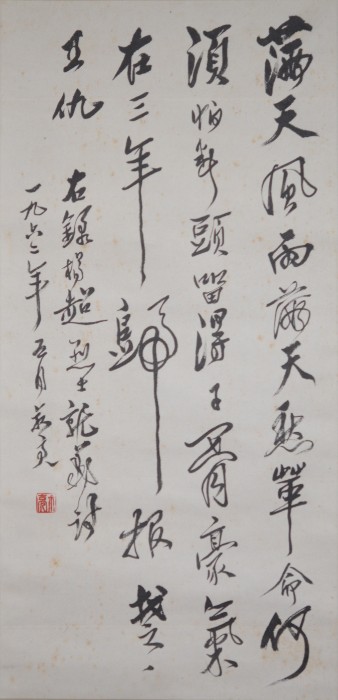 滿天風雨滿天愁革命何
須怕斷頭留得子胥豪氣
在三年歸報楚
王仇
右錄楊超烈士就義詩
一九六二年五月